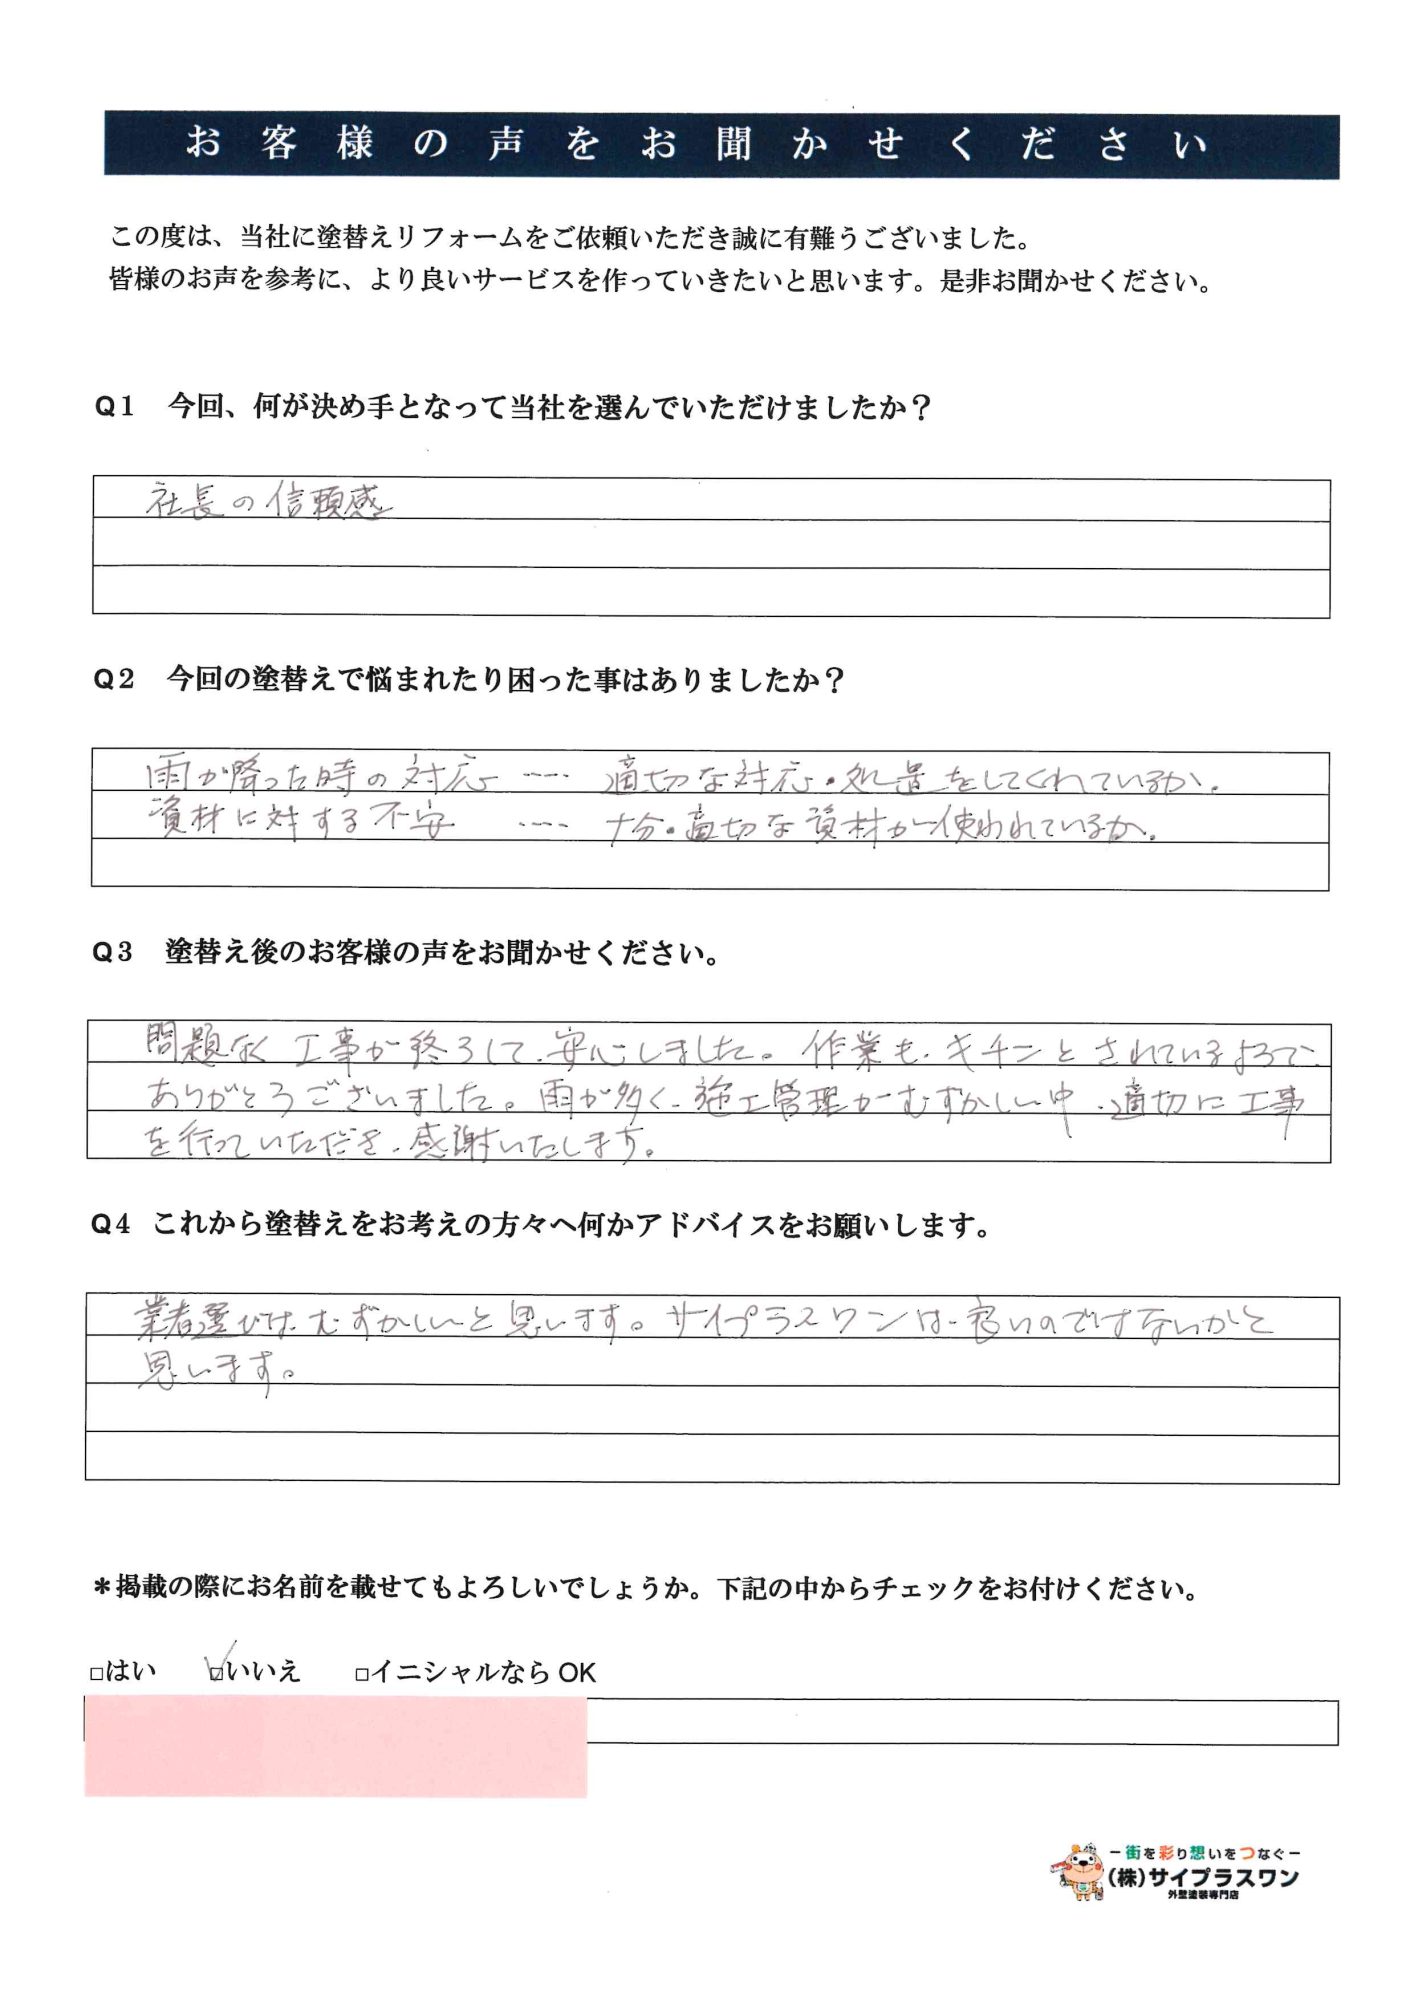 お客様の声をお聞かせください
この度は、当社に塗替えリフォームをご依頼いただき誠に有難うございました。
皆様のお声を参考に、より良いサービスを作っていきたいと思います。是非お聞かせください。
Q1 今回、何が決め手となって当社を選んでいただけましたか？
社長の信頼感
Q2 今回の塗替えで悩まれたり困った事はありましたか？
雨が降った時の対応 ---- 適切な対応・処置をしてくれているか、
資材に対する不安 ---- 十分・適切な資材が使われているか、
Q3 塗替え後のお客様の声をお聞かせください。
問題なく工事が終了して、安心しました。作業も、キチンとされているようで、
ありがとうございました。雨が多く、施工管理がむずかしい中、適切に工事
を行っていただき、感謝いたします。
Q4 これから塗替えをお考えの方々へ何かアドバイスをお願いします。
業者選びは、むずかしいと思います。サイプラスワンは、良いのではないかと
思います。
＊掲載の際にお名前を載せてもよろしいでしょうか。下記の中からチェックをお付けください。
□はい ☑いいえ □イニシャルなら OK
ー街を彩り想いをつなぐー
(株)サイプラスワン
外壁塗装専門店